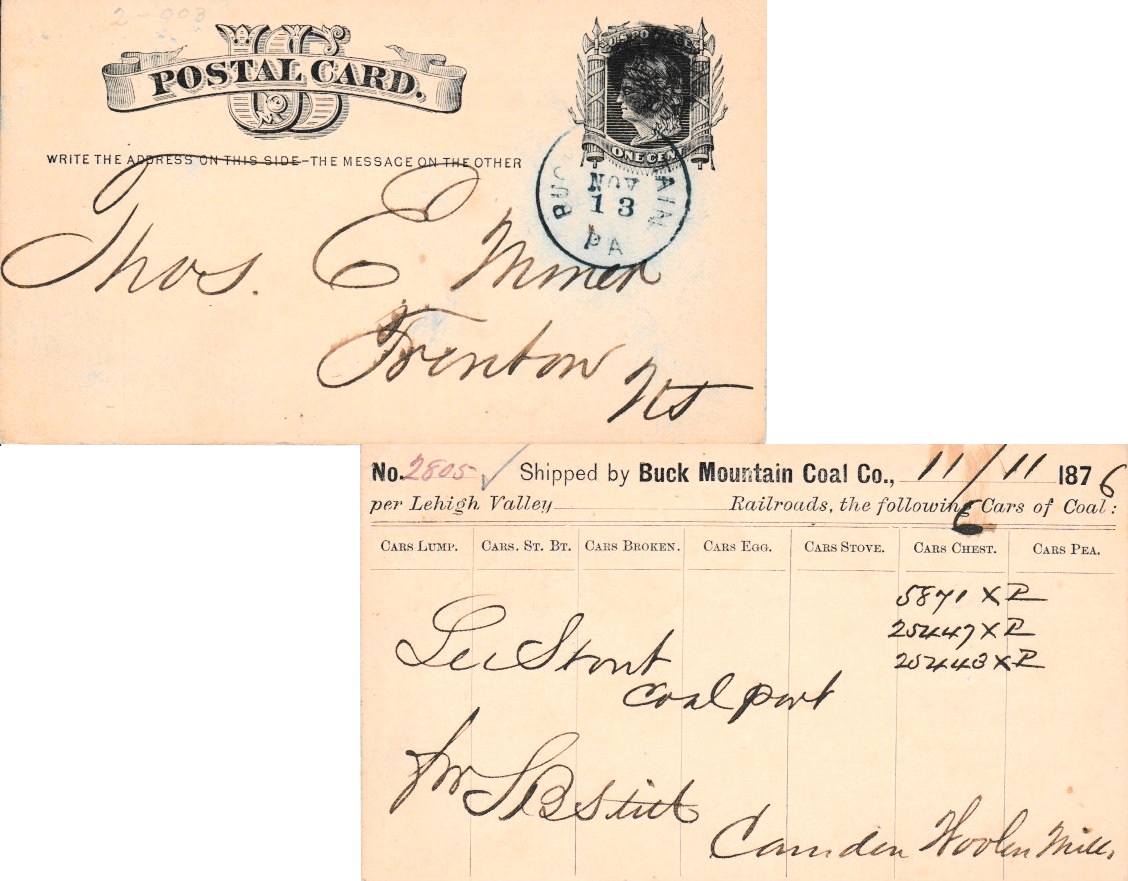 2-003
US
POSTAL CARD.
U.S. POSTAGE
ONE CENT
WRITE THE ADDRESS ON THIS SIDE-THE MESSAGE ON THE OTHER
NOV
13
PA
Thos. E Miner
Trenton NJ
No. 2805 Shipped by Buck Mountain Coal Co., 11/11 1876
per Lehigh Valley Railroads, the following 6 Cars of Coal:
CARS LUMP. CARS. ST. BT. CARS BROKEN. CARS EGG. CARS STOVE. CARS CHEST. CARS PEA.
5871 X R
25447 X R
25443 X R
Stout
Coal port
for S B Stitt
Camden Woolen Mill.